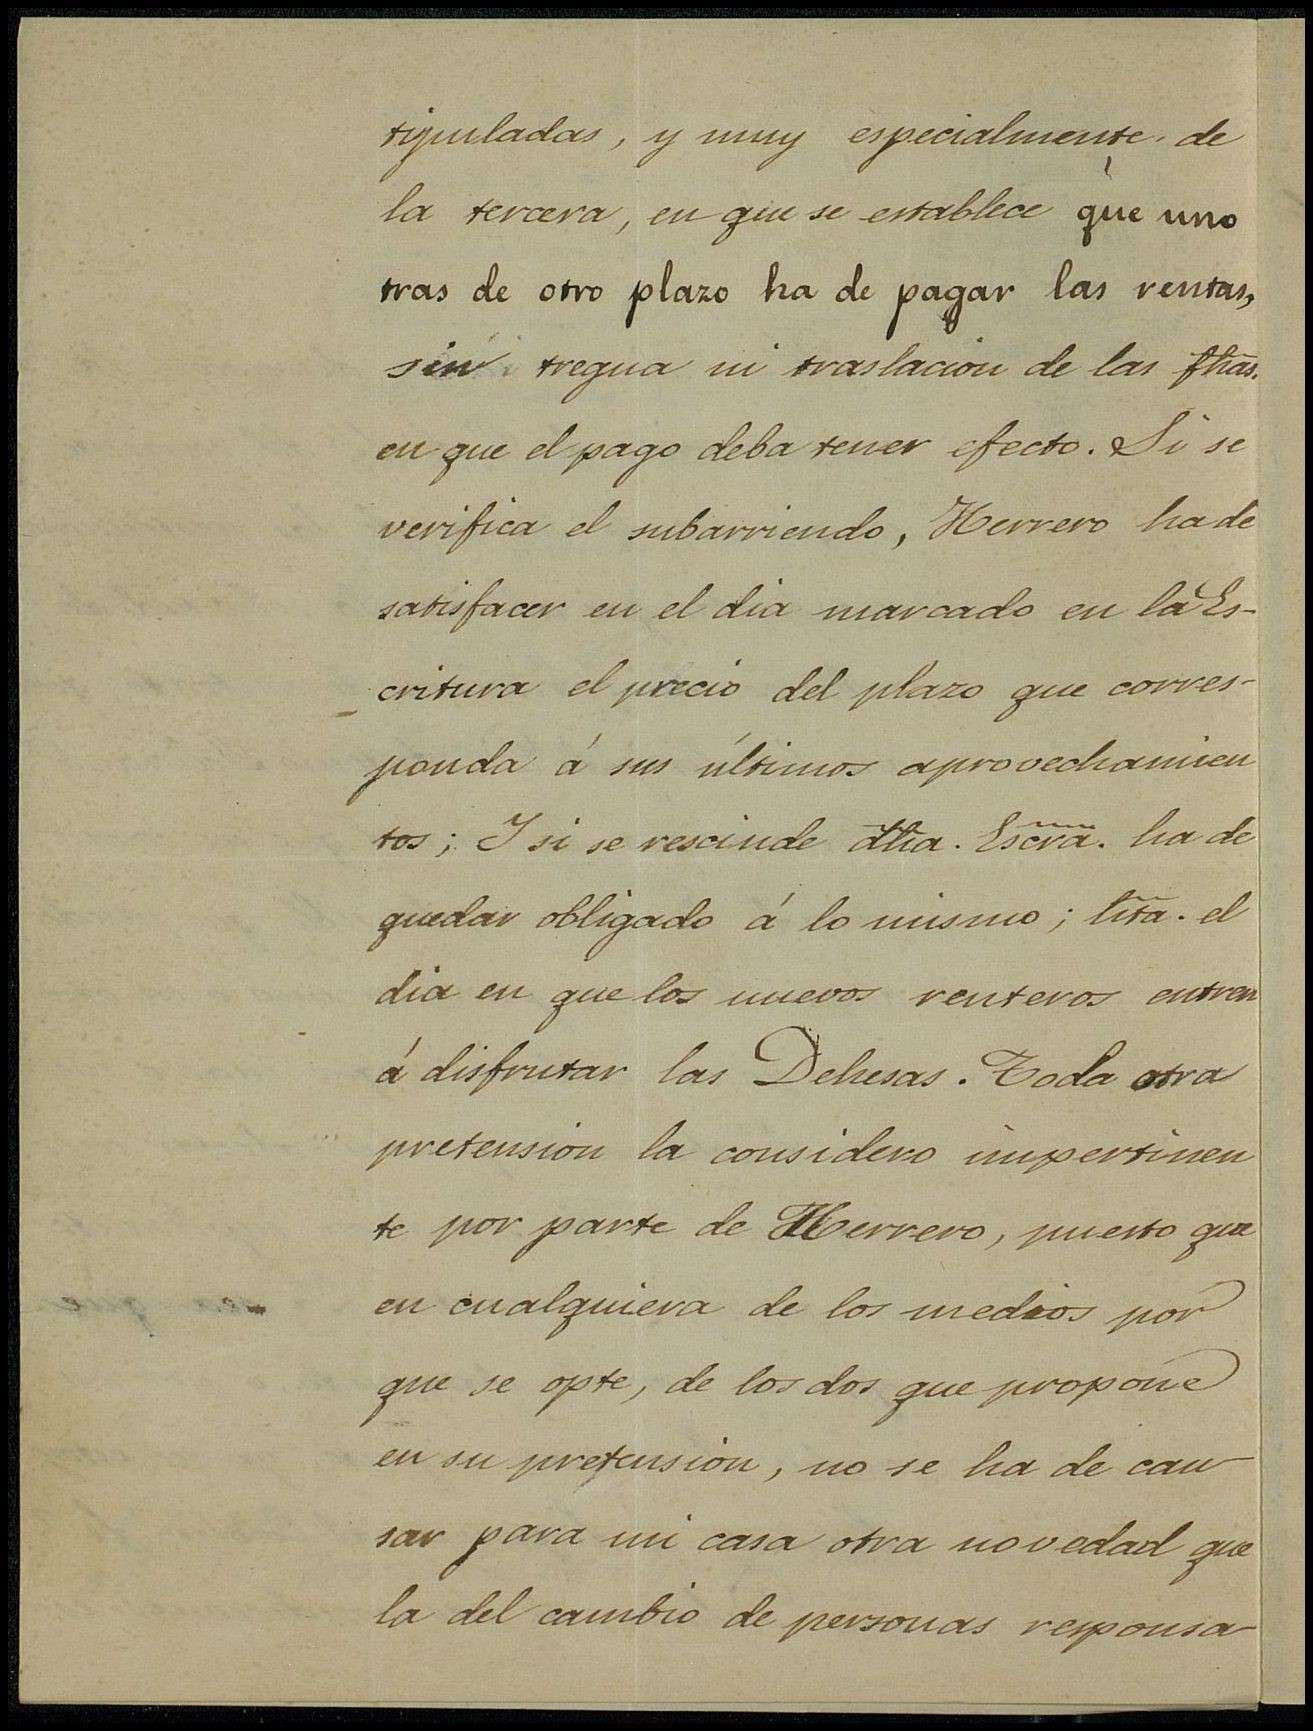 tipuladas, y muy especialmente de
la tercera, en que se establece que uno
tras de otro plazo ha de pagar las rentas,
sin tregua ni traslacion de las fhãs.
en que el pago deba tener efecto. Si se
verifica el subarriendo, Herrero ha de
satisfacer en el dia marcado en la Es-
critura el precio del plazo que corres-
ponda á sus últimos aprovechamien
tos; Y si se rescinde dha. Escra. ha de
quedar obligado á lo mismo; hta. el
dia en que los nuevos renteros entren
á disfrutar las Dehesas. Toda otra
pretension la considero impertinen
te por parte de Herrero, puesto que
en cualquiera de los medios por
que se opte, de los dos que propone
en su pretension, no se ha de cau
sar para mi casa otra novedad que
la del cambio de personas responsa